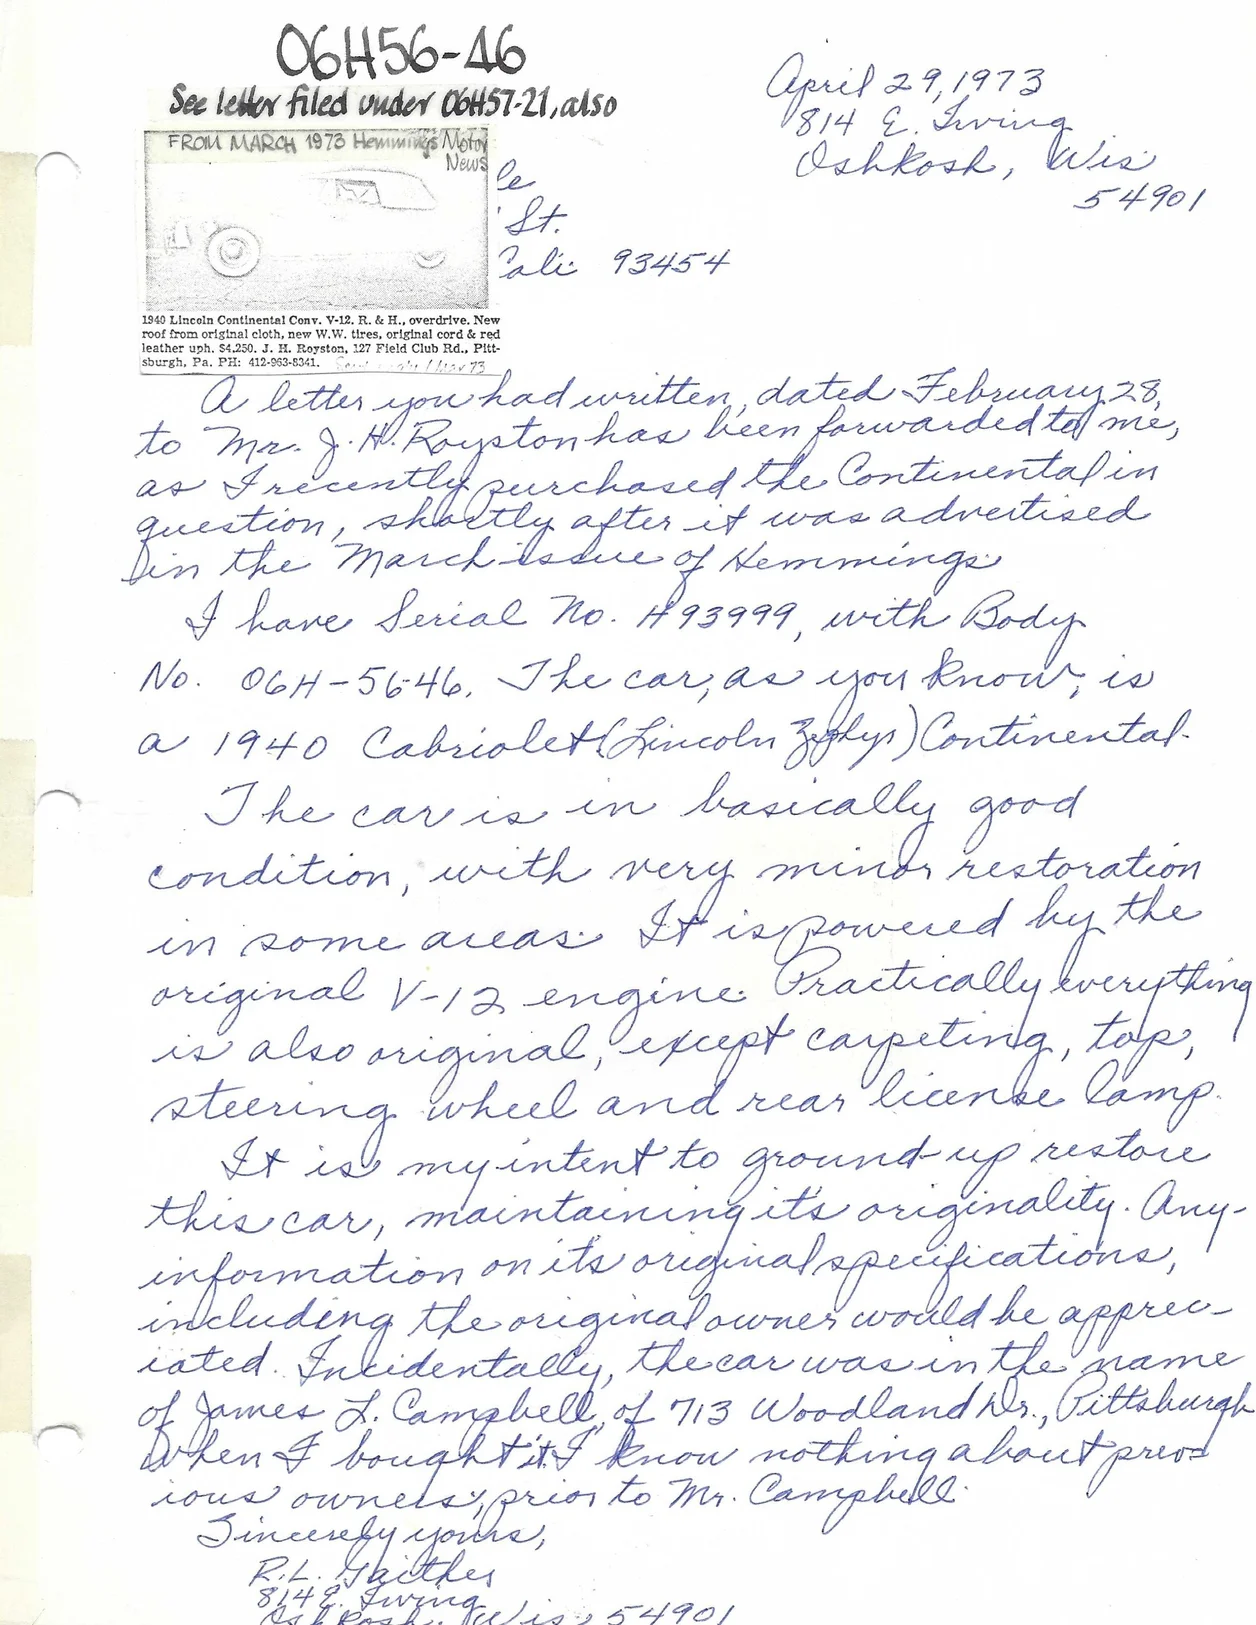 06H56-46
See letter filed under 06H57-21, also
FROM MARCH 1973 Hemmings Motor
News
April 29, 1973
814 E. Irving
Oshkosh, Wis.
54901
le
St.
Cali. 93454
1940 Lincoln Continental Conv. V-12. R. & H., overdrive. New
roof from original cloth, new W.W. tires, original cord & red
leather uph. $4,250. J. H. Royston, 127 Field Club Rd., Pitt-
sburgh, Pa. PH: 412-963-8341.
A letter you had written, dated February 28,
to Mr. J. H. Royston has been forwarded to me,
as I recently purchased the Continental in
question, shortly after it was advertised
in the March issue of Hemmings.
I have Serial No. H93999, with Body
No. 06H-5646. The car, as you know, is
a 1940 Cabriolet (Lincoln Zephyr) Continental.
The car is in basically good
condition, with very minor restoration
in some areas. It is powered by the
original V-12 engine. Practically everything
is also original, except carpeting, top,
steering wheel and rear license lamp.
It is my intent to ground-up restore
this car, maintaining it's originality. Any
information on it's original specifications,
including the original owner would be apprec-
iated. Incidentally, the car was in the name
of James L. Campbell, of 713 Woodland Dr., Pittsburgh
When I bought it. I know nothing about prev-
ious owners, prior to Mr. Campbell.
Sincerely yours,
R.L. Gaither
814 E. Irving
Oshkosh, Wis. 54901